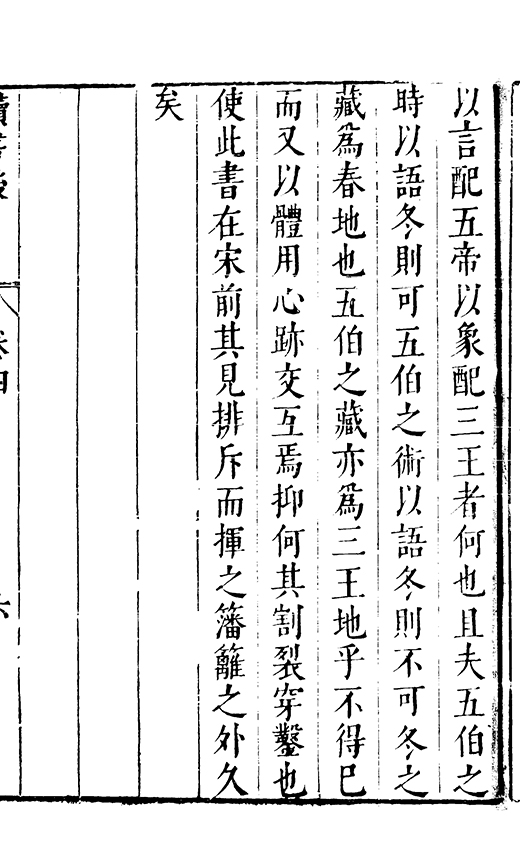 以言配五帝以象配三王者何也且夫五伯之
時以語冬則可五伯之術以語冬則不可冬之
藏爲春地也五伯之藏亦爲三王地乎不得已
而又以體用心跡交互焉抑何其割裂穿鑿也
使此書在宋前其見排斥而揮之籓籬之外久
矣
讀書後
卷四
六